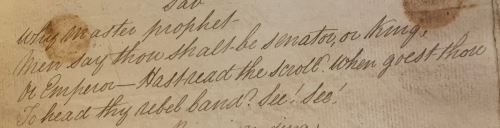 Why master prophet-
Men say thou shalt be senator, or King,
Or Emperor — Hast read the scroll? When goest thou
To head thy rebel band? See! See!